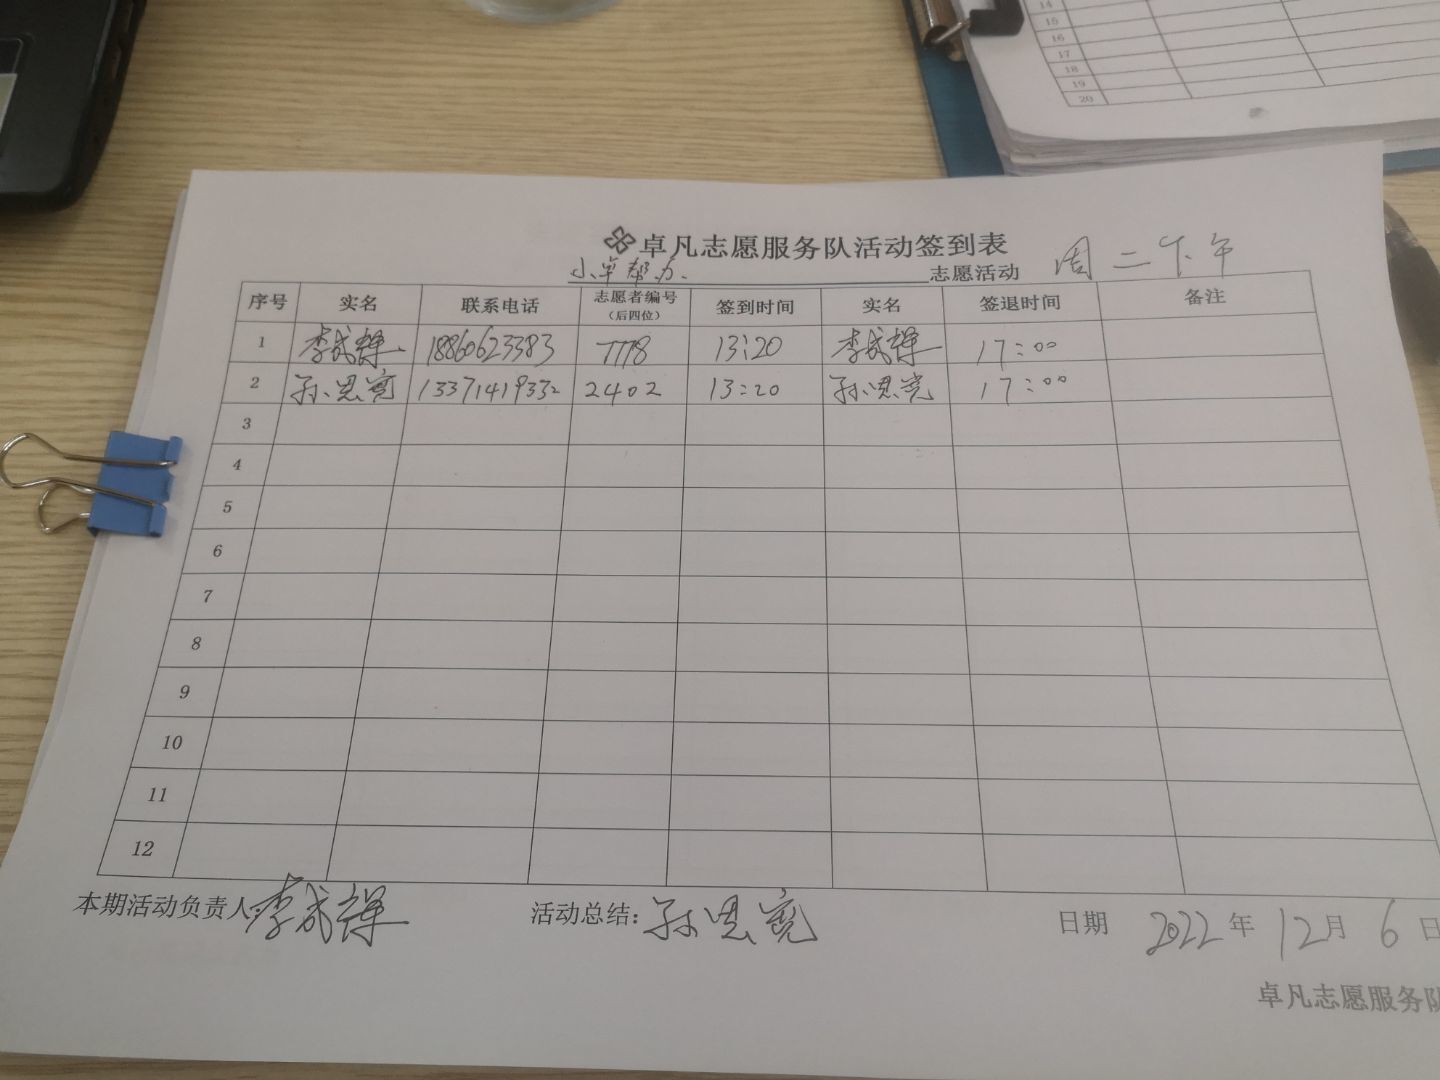 14
15
16
17
18
19
20
卓凡志愿服务队活动签到表
小卓帮办 志愿活动 周二下午
序号 实名 联系电话 志愿者编号(后四位) 签到时间 实名 签退时间 备注
1 李成 18860623383 7778 13:20 李成 17:00
2 孙恩宽 13371419332 2402 13:20 孙恩宽 17:00
3
4
5
6
7
8
9
10
11
12
本期活动负责人:李成 活动总结:孙恩宽 日期 2022年12月6日
卓凡志愿服务队